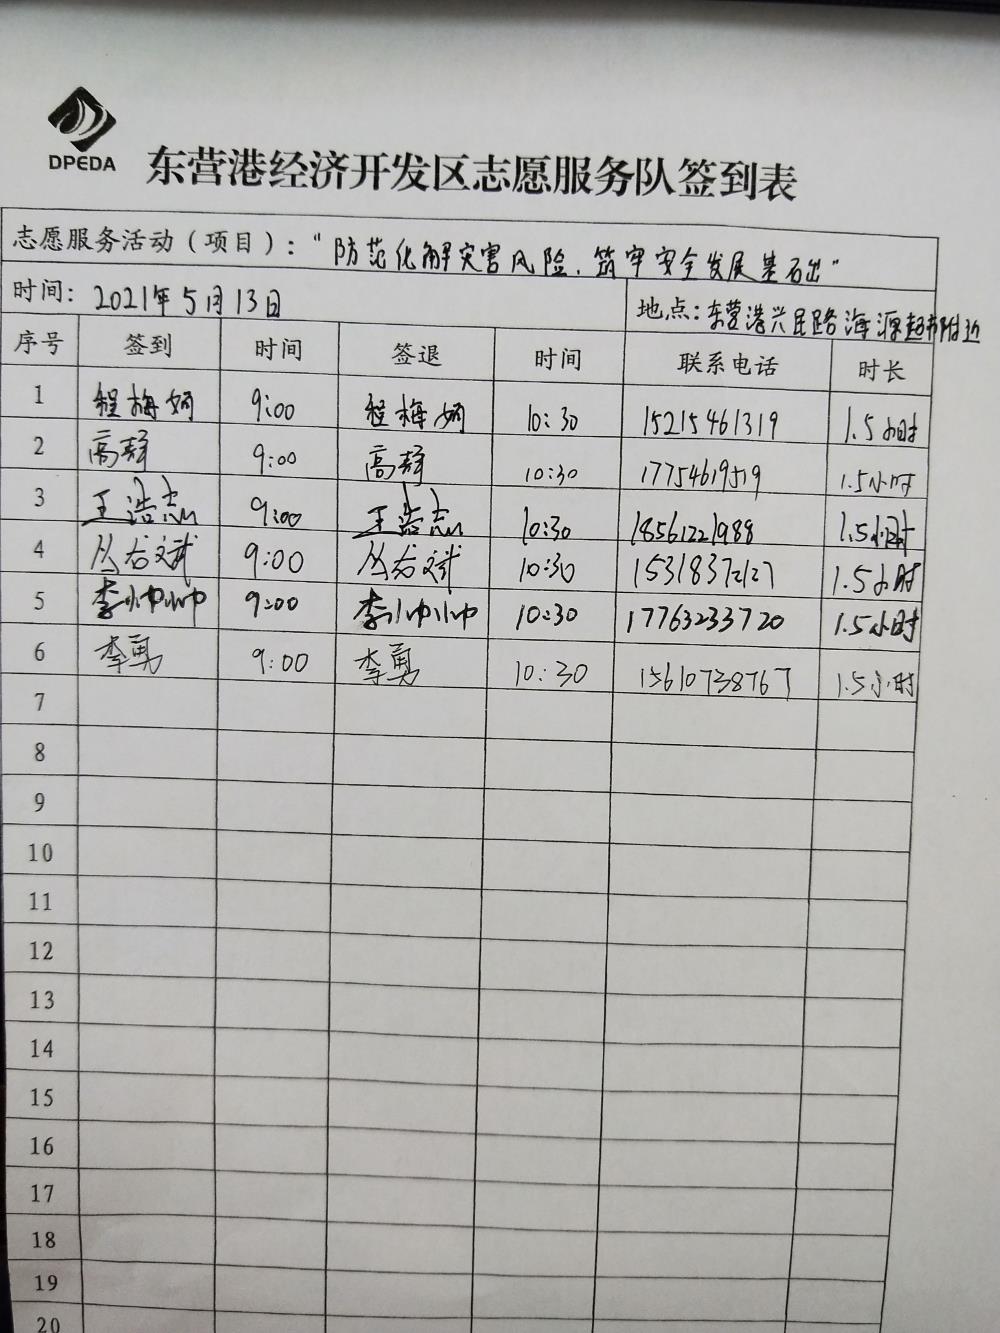 DPEDA
东营港经济开发区志愿服务队签到表
志愿服务活动（项目）："防范化解灾害风险、筑牢安全发展基石出"
时间：2021年5月13日 地点：东营港兴民路海源超市附近
序号 签到 时间 签退 时间 联系电话 时长
1 程梅娟 9:00 程梅娟 10:30 15215461319 1.5小时
2 高静 9:00 高静 10:30 17754619519 1.5小时
3 王浩志 9:00 王浩志 10:30 18561221988 1.5小时
4 丛龙斌 9:00 丛龙斌 10:30 15318372127 1.5小时
5 李帅帅 9:00 李帅帅 10:30 17763233720 1.5小时
6 李勇 9:00 李勇 10:30 15610738767 1.5小时
7
8
9
10
11
12
13
14
15
16
17
18
19
20